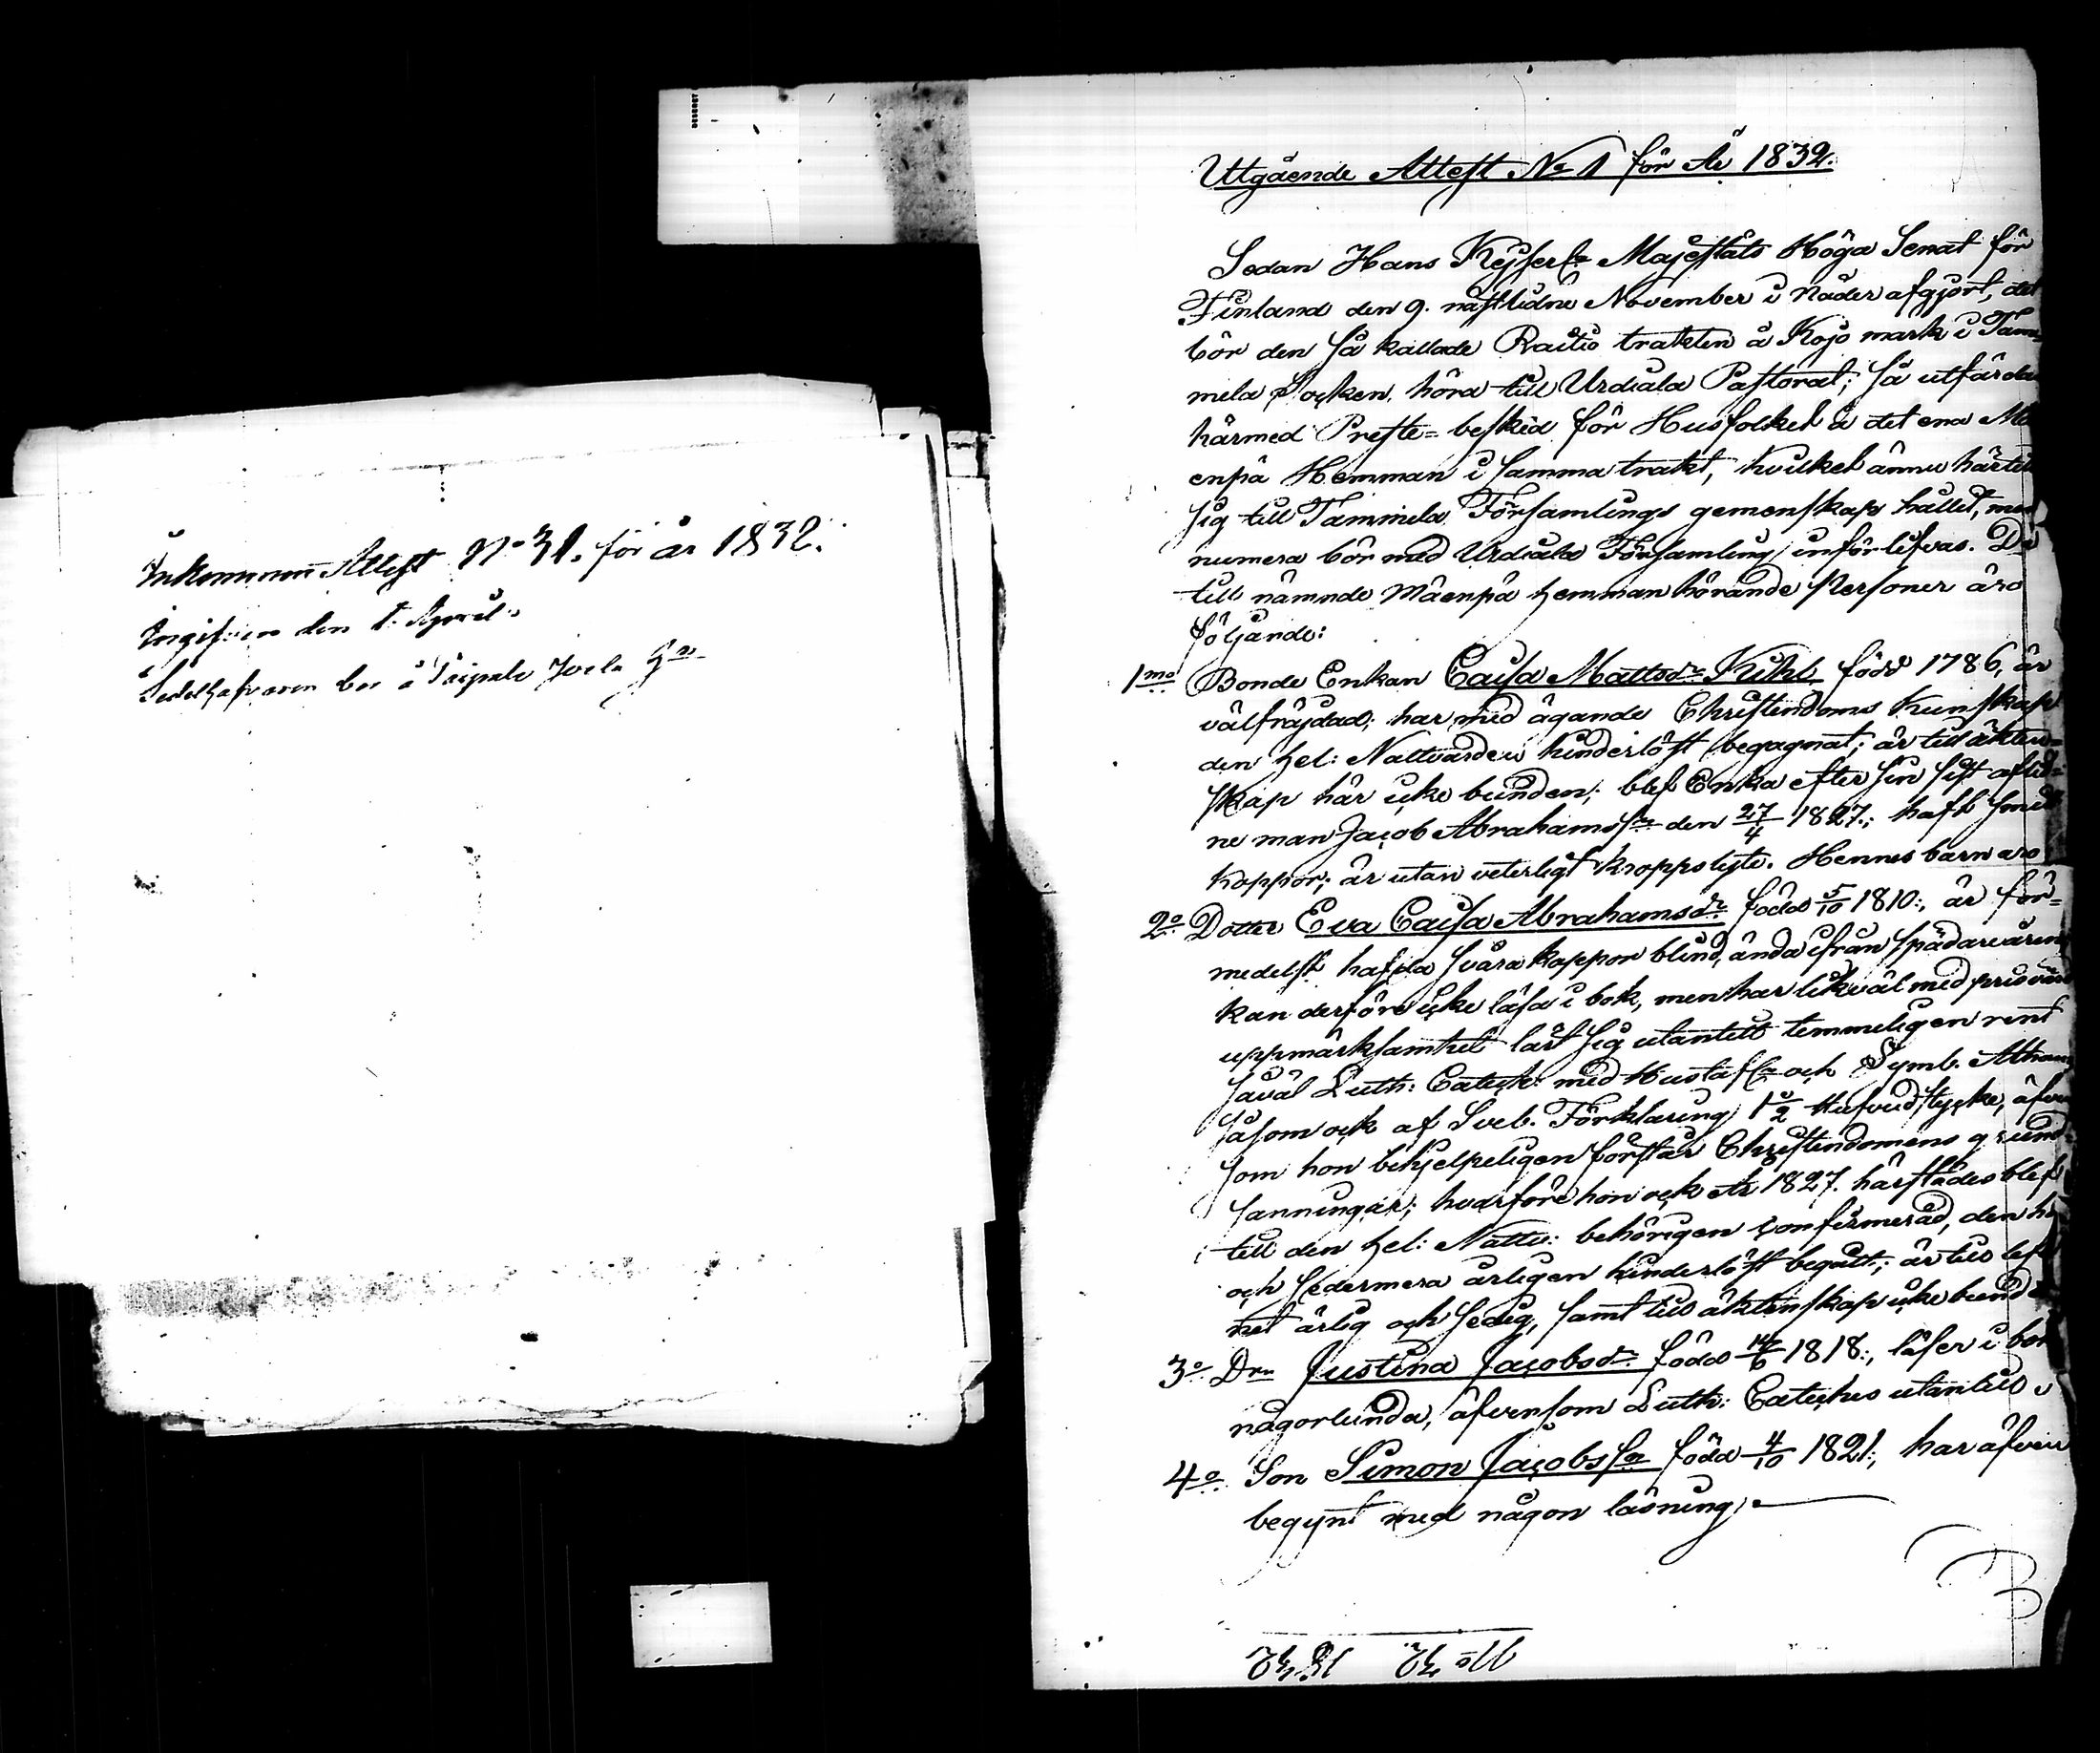 Inkommen Attest No 31. för år 1832.
Ingifven den 1. April
Sedelhafvaren bor å Taipale Jvela
Utgående Attest No 1 för År 1832.
Sedan Hans Kejserl. Majestäts Höga Senat för
Finland den 9. nästlidne November i Nåder afgjort, det
bör den så kallade Raitio trakten å Kojo mark i Tam-
mela Socken, höra till Urdiala Pastorat; så utfärda
härmed Preste-besked för Husfolket å det ena Mä
enpä Hemman i samma trakt, hvilket ännu härtill
sig till Tammela Församlings gemenskap hållit, men
numera bör med Urdiala Församling införlifvas. De
till nämnde Mäenpä hemman hörande Personer äro
följande:
1mo Bonde Enkan Caisa Mattsdr Kihl född 1786, är
välfräjdad; har med ägande Christendoms Kunskap
den hel: Nattvarden hinderlöst begagnat; är till äkten-
skap här icke bunden; blef Enka efter sin sist aflid-
ne man Jacob Abrahamsson den 27/4 1827.; haft smitt
koppor; är utan veterligt kroppslyte. Hennes barn äro
2o Dotter Eva Caisa Abrahamsdr född 5/10 1810:, är för-
medelst hafda svåra koppor blind, ända ifrån spädare åren
kan derföre icke läsa i bok, men har likväl med prisvärd
uppmärksamhet lärt sig utantill temmeligen rent
såväl Luth: Cateches: med Hustafln och Symb. Athan
såsom ock af Sveb. Förklaring 1 1/2 Hufvudstycke, äfven
som hon behjelpeligen förstår Christendomens grund-
sanningar; hvarföre hon ock År 1827. härstädes blef
till den hel: Nattv: behörigen confirmerad, den hon
och sedermera årligen hinderlöst begått; är till lef
net ärlig och sedig, samt till äktenskap icke bunden
3o Drn Justina Jacobsdr född 14/6 1818:, läser i bok
någorlunda, äfvensom Luth: Cateches utantill
4o Son Simon Jacobssn född 4/10 1821:, har äfven
begynt med någon läsning.
No 32 1832